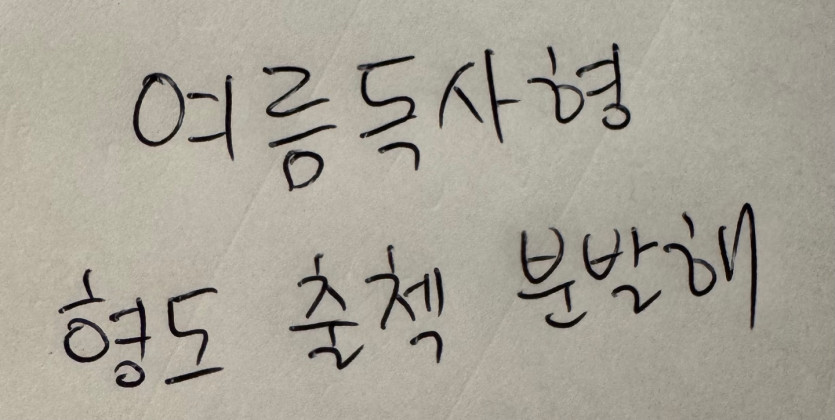 여름독사형
형도 출첵 분발해